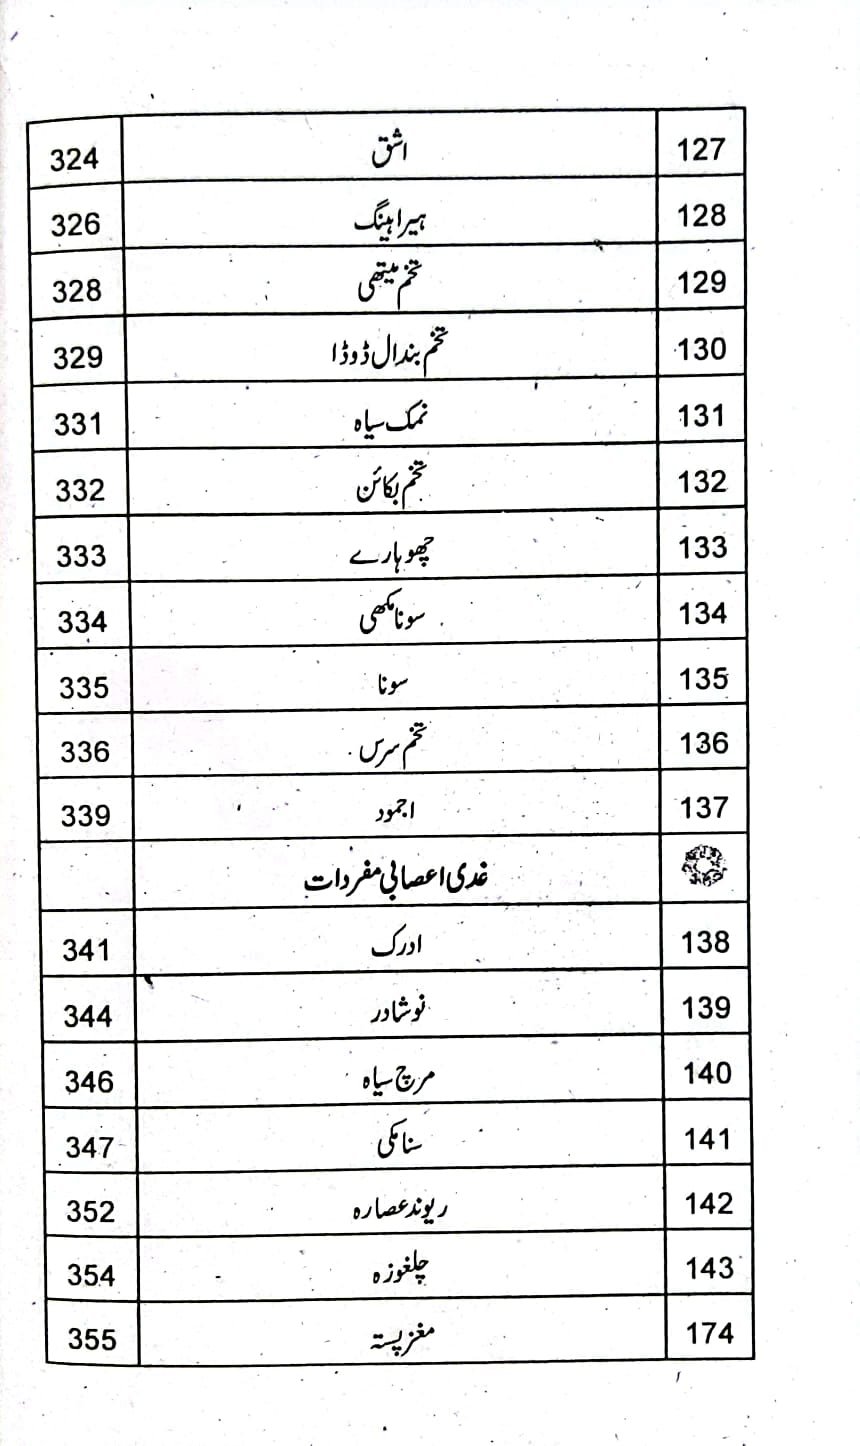 127 اشق 324
128 ہیراہینگ 326
129 تخم میتھی 328
130 تخم بندال ڈوڈا 329
131 نمک سیاہ 331
132 تخم بکائن 332
133 چھوہارے 333
134 سونا مکھی 334
135 سونا 335
136 تخم سرس 336
137 اجمود 339
غدی اعصابی مفردات
138 ادرک 341
139 نوشادر 344
140 مرچ سیاہ 346
141 سنامکی 347
142 ریوند عصارہ 352
143 چلغوزہ 354
174 مغز پستہ 355